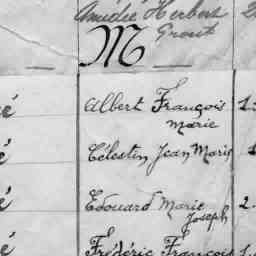 Amédée Herbert 2
Grout
M
é Albert François 1.
Marie
é Célestin Jean Marie 1
é Edouard Marie 2.
Joseph
é Frédéric François 1.